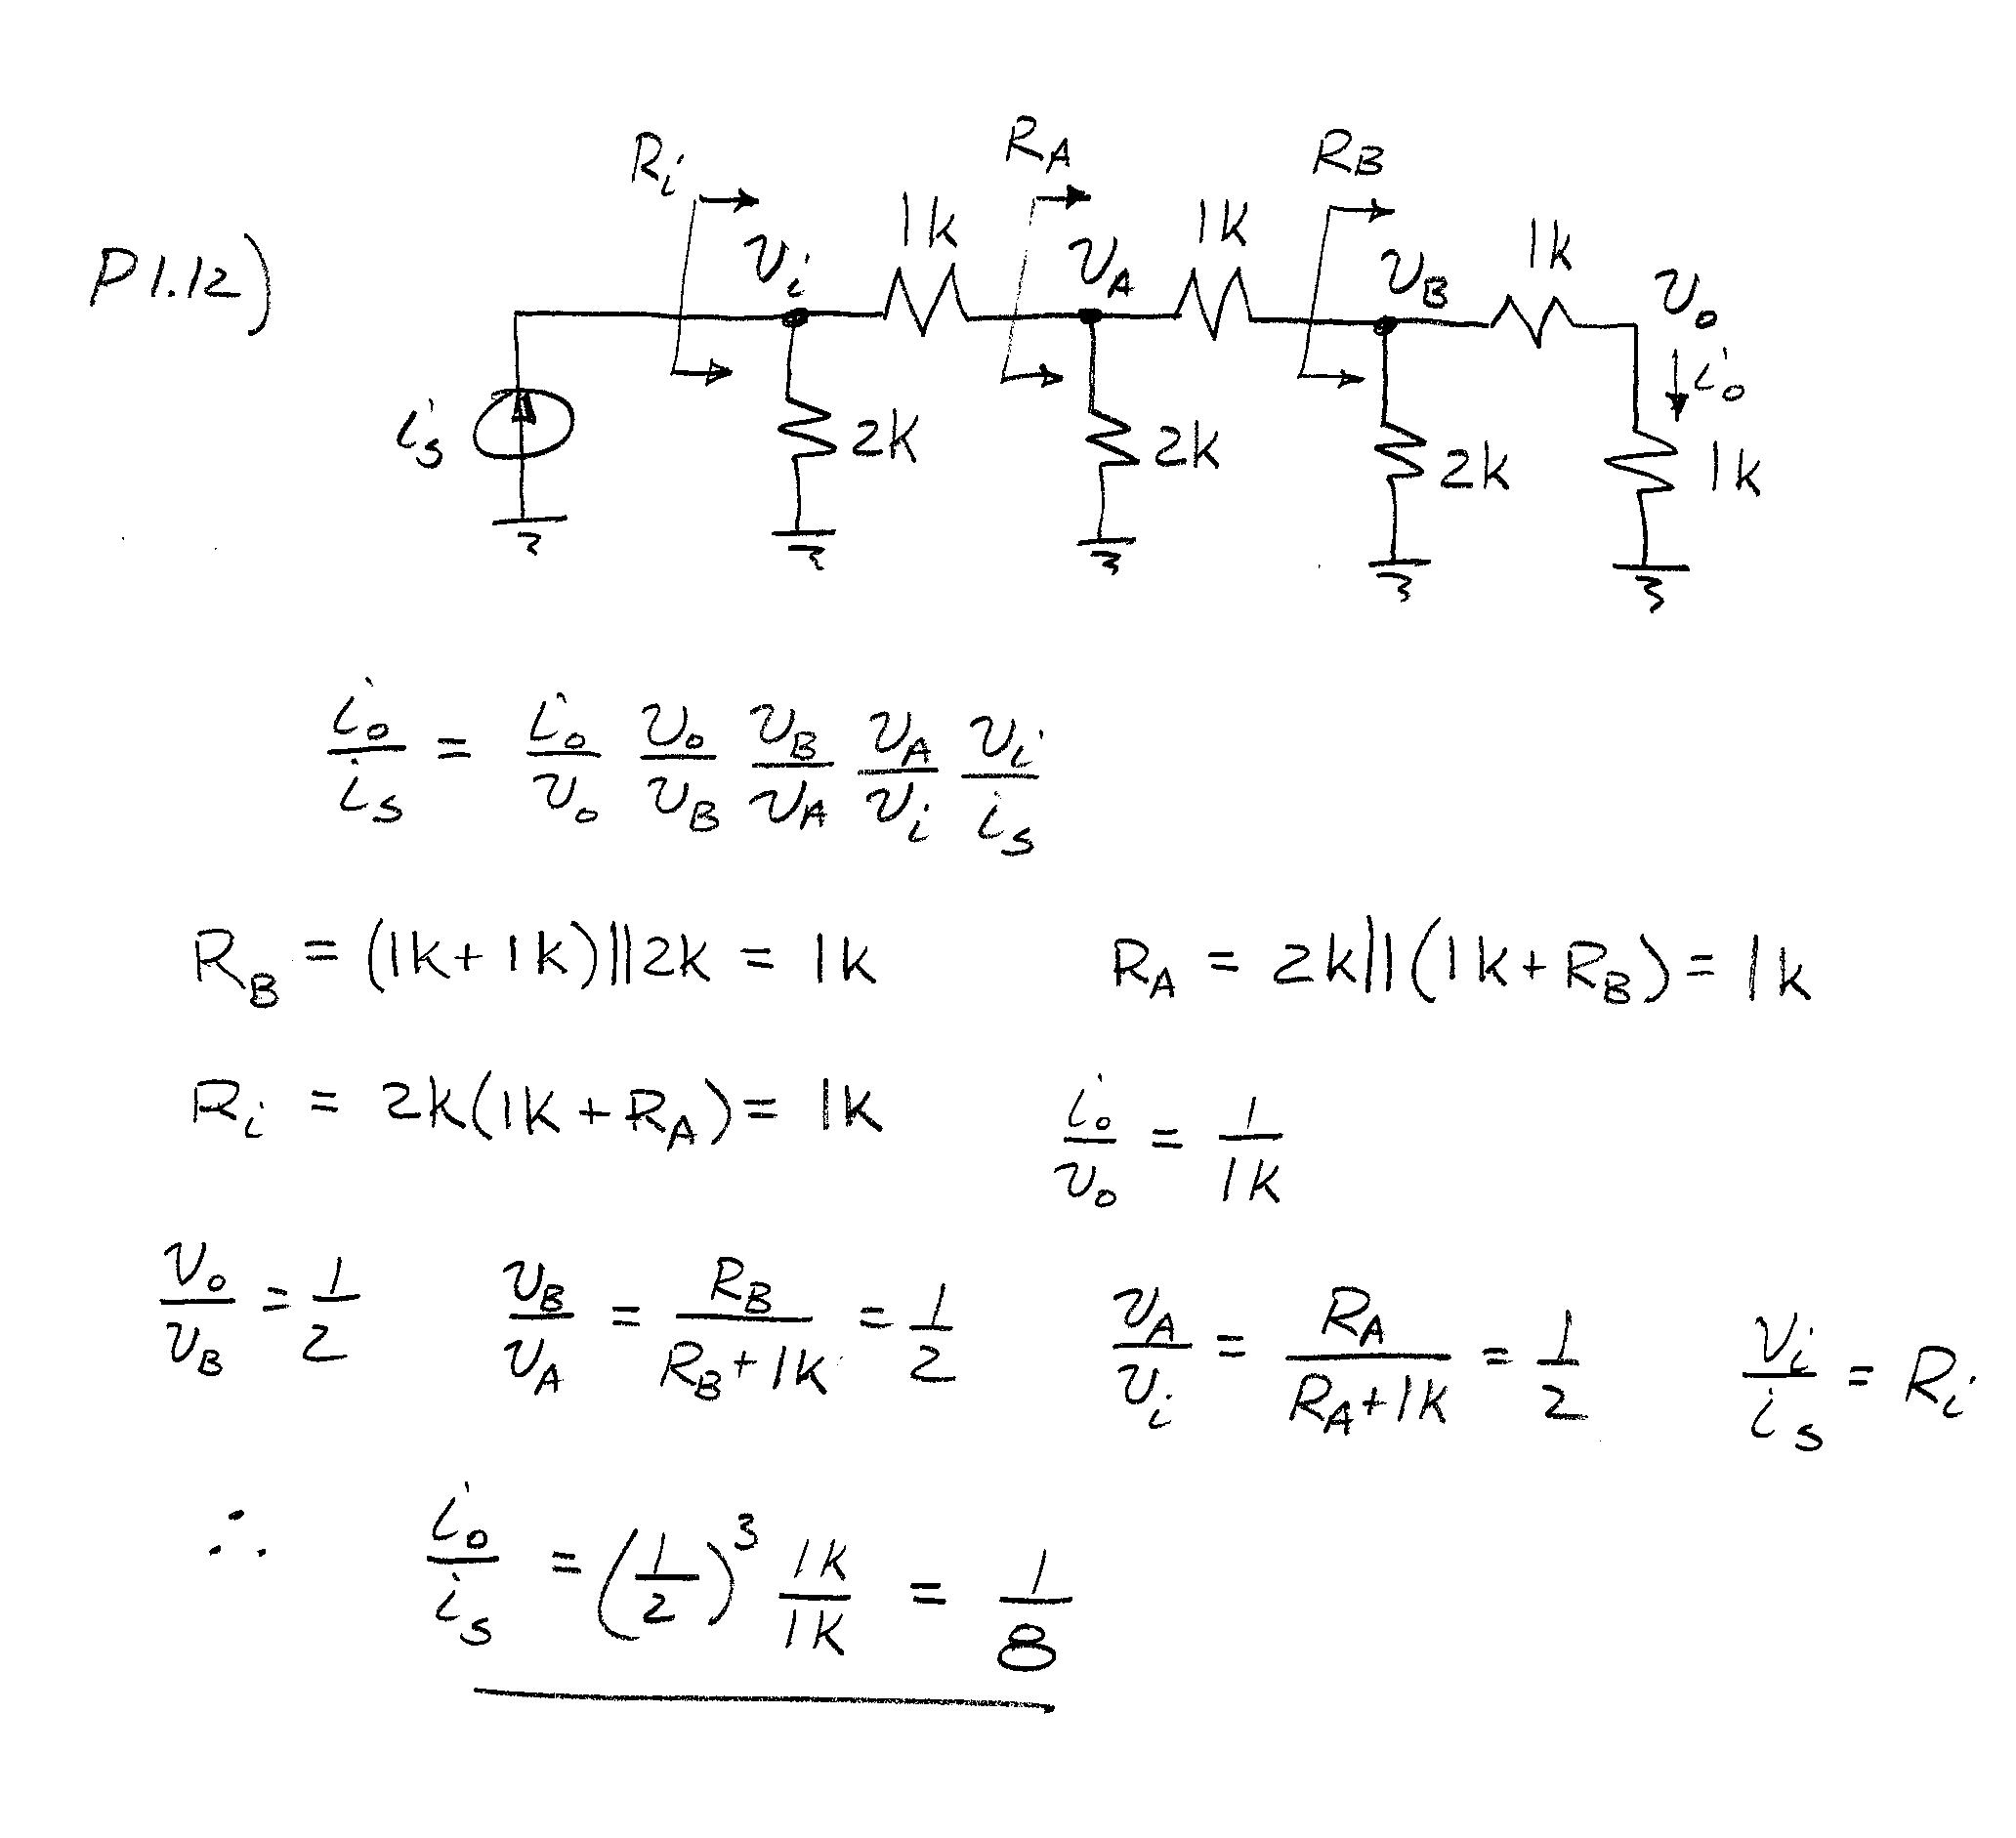 P1.12)
R_i R_A R_B
v_i 1k v_A 1k v_B 1k v_o
i_o
i_s 2k 2k 2k 1k
i_o/i_s = i_o/v_o v_o/v_B v_B/v_A v_A/v_i v_i/i_s
R_B = (1k+1k)||2k = 1k R_A = 2k||(1k+R_B) = 1k
R_i = 2k(1k+R_A) = 1k i_o/v_o = 1/1k
v_o/v_B = 1/2 v_B/v_A = R_B/(R_B+1k) = 1/2 v_A/v_i = R_A/(R_A+1k) = 1/2 v_i/i_s = R_i
∴ i_o/i_s = (1/2)^3 1k/1k = 1/8